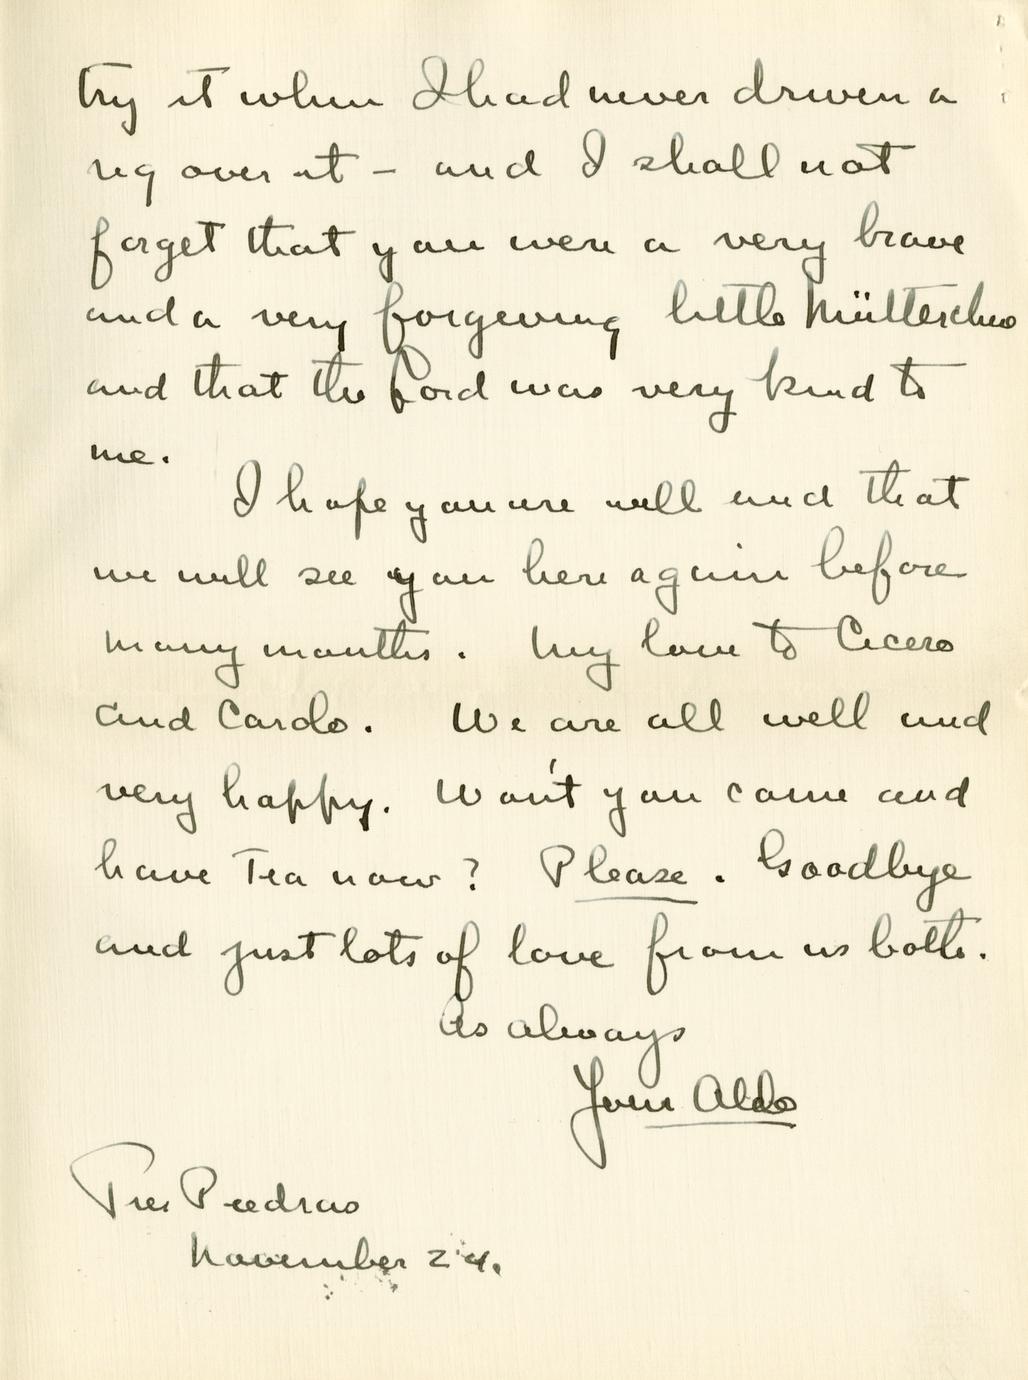 try it when I had never driven a
rig over it – and I shall not
forget that you were a very brave
and a very forgiving little Mütterchen
and that the Lord was very kind to
me.
I hope you are well and that
we will see you here again before
many months. My love to Cicero
and Carolo. We are all well and
very happy. Won't you come and
have Tea now? Please. Goodbye
and just lots of love from us both.
As always
Your Aldo
Tres Piedras
November 24.